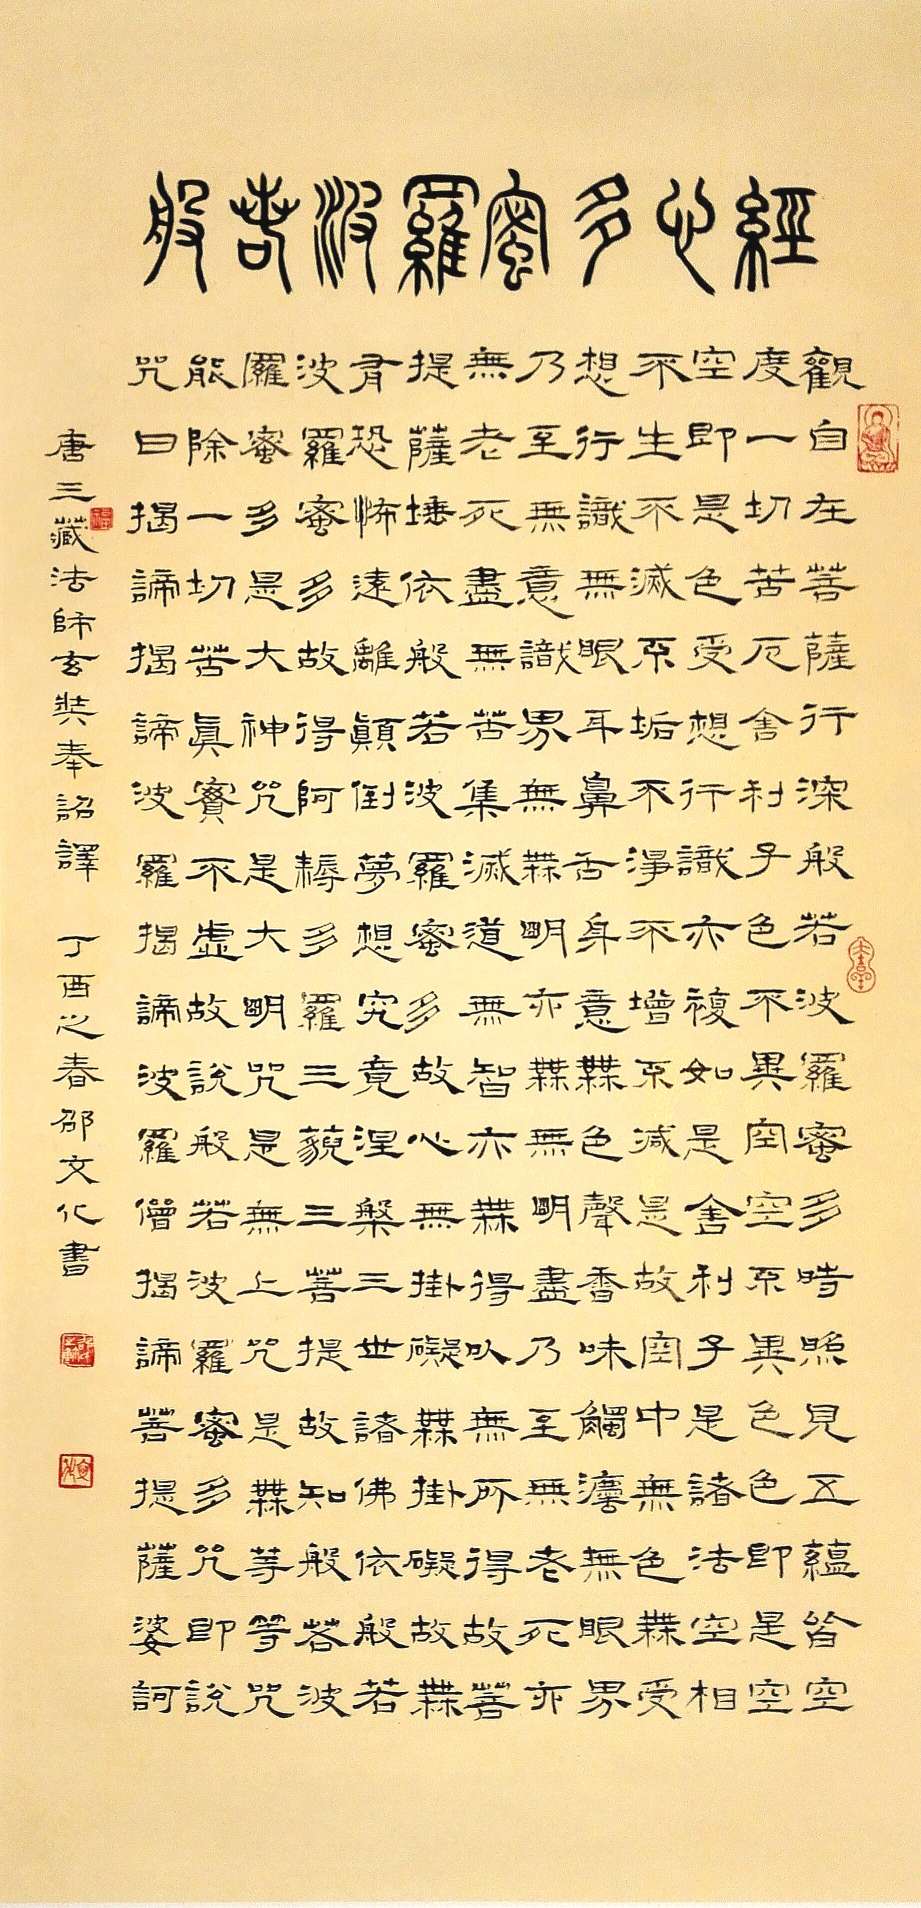 般若波羅蜜多心經
觀自在菩薩行深般若波羅蜜多時照見五蘊皆空
度一切苦厄舍利子色不異空空不異色色即是空
空即是色受想行識亦複如是舍利子是諸法空相
不生不滅不垢不淨不增不減是故空中無色無受
想行識無眼耳鼻舌身意無色聲香味觸灋無眼界
乃至無意識界無無明亦無無明盡乃至無老死亦
無老死盡無苦集滅道無智亦無得以無所得故菩
提薩埵依般若波羅蜜多故心無掛礙無掛礙故無
有恐怖遠離顛倒夢想究竟涅槃三世諸佛依般若
波羅蜜多故得阿耨多羅三藐三菩提故知般若波
羅蜜多是大神咒是大明咒是無上咒是無等等咒
能除一切苦真實不虛故說般若波羅蜜多咒即說
咒曰揭諦揭諦波羅揭諦波羅僧揭諦菩提薩婆訶
唐三藏法師玄奘奉詔譯 丁酉之春邵文化書